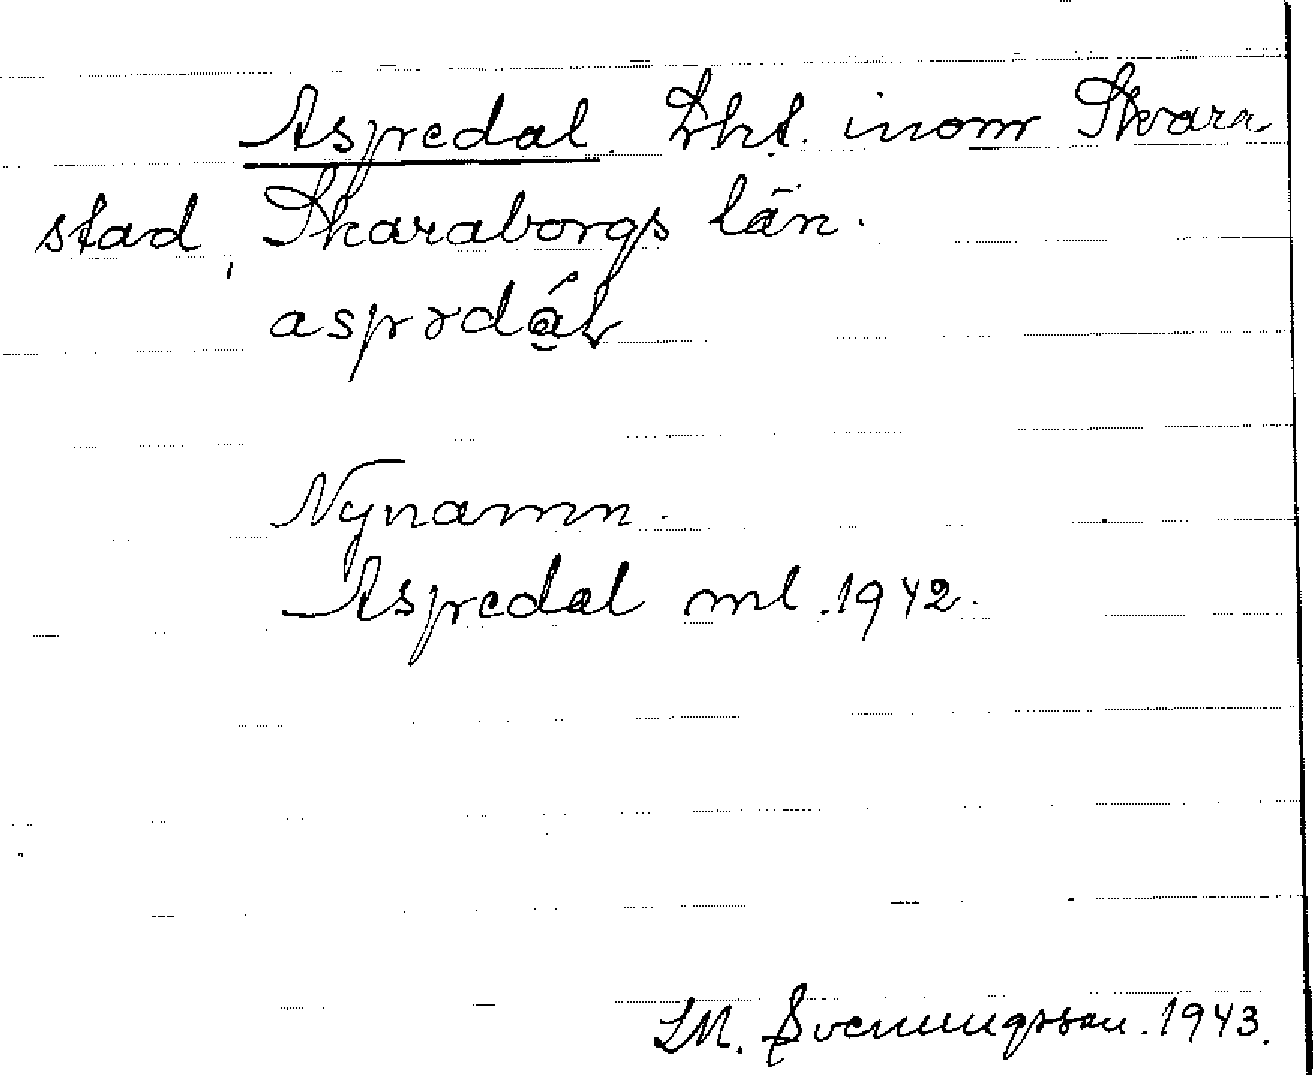 Aspedal. Lht. inom Skara
stad, Skaraborgs län.
aspədál
Nynamn.
Aspedal ml. 1942.
LM. Svenningsson. 1943.